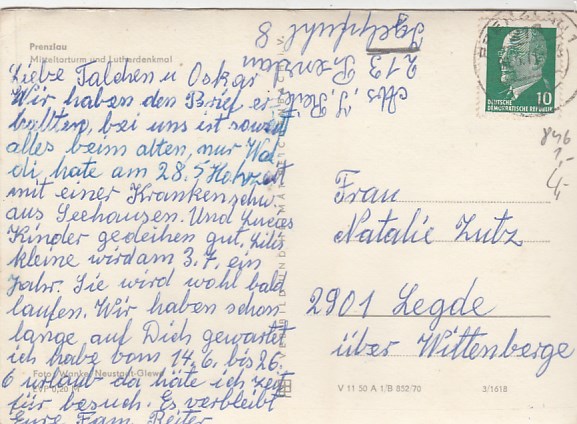 Prenzlau
Mitteltorturm und Lutherdenkmal
Liebe Talchen u Oskar
Wir haben den Brief er
halten, bei uns ist soweit
alles beim alten, nur Wal
di, hate am 28.5 Hohzeit
mit einer Krankenschw.
aus Seehausen. Und
Kinder gedeihen gut,
kleine wird am 3.7. ein
Jahr. Sie wird wohl bald
laufen. Wir haben schon
lange auf Dich gewartet
ich habe vom 14.6. bis 26.
6 urlaub da häte ich zeit
für besuch. Es verbleibt
Eure Fam. Reiter
Foto: Wanke, Neustadt-Glewe
EVP 0,20 M
Abs. J. Reiter
213 Prenzlau
8
DEUTSCHE
DEMOKRATISCHE REPUBLIK
10
846
1,-
4,-
Frau
Natalie Zutz
2901 Legde
über Wittenberge
V 11 50 A 1/B 852/70
3/1618